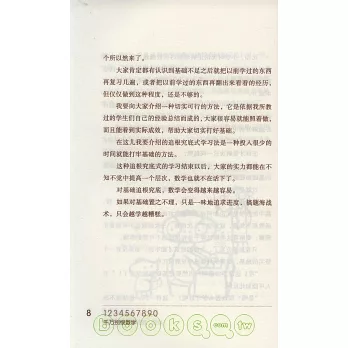 个所以然来了。
大家肯定都有认识到基础不足之后就把以前学过的东西
再复习几遍，或者把以前学过的东西再翻出来看看的经历，
但仅仅做到这种程度，还是不够的。
我要向大家介绍一种切实可行的方法，它是依据我所教
过的学生们自己的经验总结而成的，大家很容易就能照着做，
而且能看到实际成效，帮助大家切实打好基础。
在这儿我要介绍的追根究底式学习法是一种投入很少的
时间就能打牢基础的方法。
这种追根究底式的学习结束以后，大家的实力都能在不
知不觉中提高一个层次，数学也就不在话下了。
对基础追根究底，数学会变得越来越容易。
如果对基础置之不理，只是一味地追求进度，搞题海战
术，只会越学越糟糕。
8 1234567890
千万别恨数学
books.com.tw